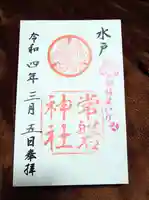 水戸
常磐
神社
令和四年三月五日奉拝